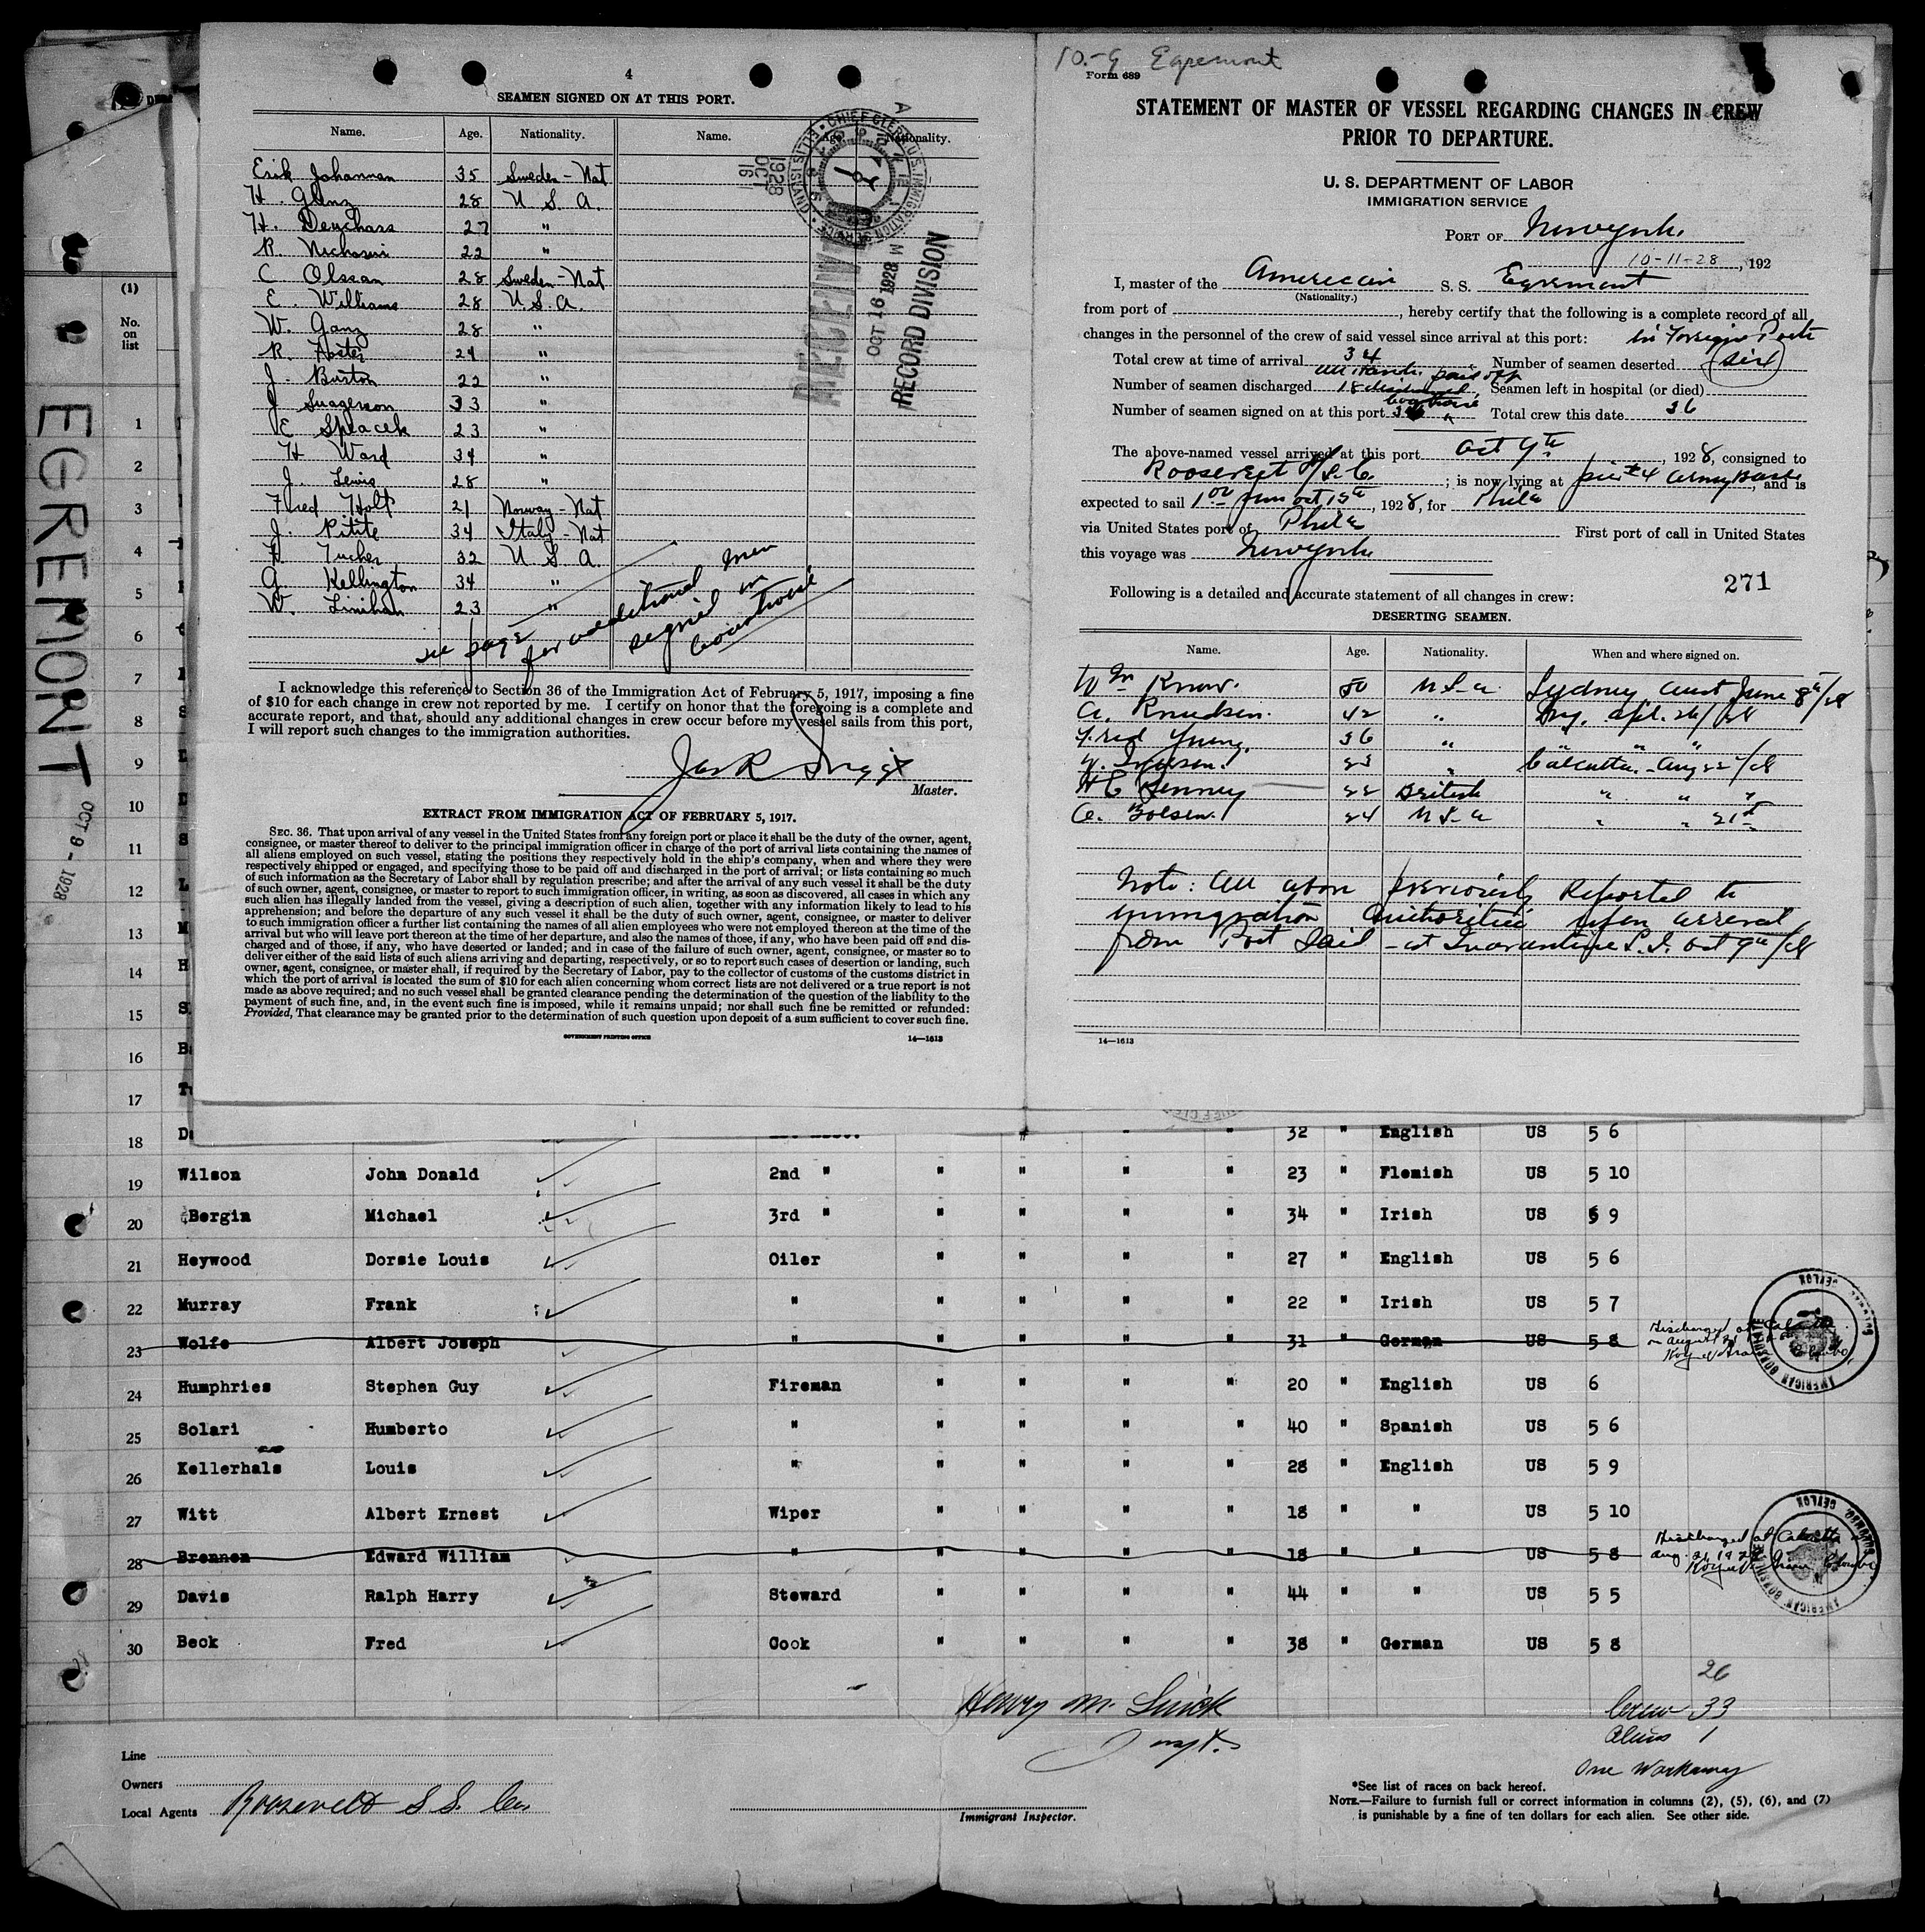 4
SEAMEN SIGNED ON AT THIS PORT.
Name. Age. Nationality. Name. Age. Nationality.
Erik Johannan 35 Sweden - Nat
H. Glenz 28 U. S. A.
H. Deuchars 27 "
R. 22 "
C Olssan 28 Sweden - Nat
E. Williams 28 U. S. A.
W. Ganz 28 "
R. Foster 24 "
J. Burton 22 "
J 33 "
E Splacek 23 "
H Ward 34 "
J. Lewis 28 "
Fred Holt 21 Norway - Nat
J. Pitite 34 Italy - Nat
H. Tucher 32 U S A
G Kellington 34 "
W. Linihan 23 "
see page for additional men signed in coastwise
CHIEF CLERK U.S. IMMIGRATION SERVICE ELLIS ISLAND
1928 OCT 16
RECEIVED
OCT 16 1928
RECORD DIVISION
I acknowledge this reference to Section 36 of the Immigration Act of February 5, 1917, imposing a fine
of $10 for each change in crew not reported by me. I certify on honor that the foregoing is a complete and
accurate report, and that, should any additional changes in crew occur before my vessel sails from this port,
I will report such changes to the immigration authorities.
Master.
EXTRACT FROM IMMIGRATION ACT OF FEBRUARY 5, 1917.
SEC. 36. That upon arrival of any vessel in the United States from any foreign port or place it shall be the duty of the owner, agent,
consignee, or master thereof to deliver to the principal immigration officer in charge of the port of arrival lists containing the names of
all aliens employed on such vessel, stating the positions they respectively hold in the ship's company, when and where they were
respectively shipped or engaged, and specifying those to be paid off and discharged in the port of arrival; or lists containing so much
of such information as the Secretary of Labor shall by regulation prescribe; and after the arrival of any such vessel it shall be the duty
of such owner, agent, consignee, or master to report to such immigration officer, in writing, as soon as discovered, all cases in which any
such alien has illegally landed from the vessel, giving a description of such alien, together with any information likely to lead to his
apprehension; and before the departure of any such vessel it shall be the duty of such owner, agent, consignee, or master to deliver
to such immigration officer a further list containing the names of all alien employees who were not employed thereon at the time of the
arrival but who will leave port thereon at the time of her departure, and also the names of those, if any, who have been paid off and dis-
charged and of those, if any, who have deserted or landed; and in case of the failure of such owner, agent, consignee, or master so to
deliver either of the said lists of such aliens arriving and departing, respectively, or so to report such cases of desertion or landing, such
owner, agent, consignee, or master shall, if required by the Secretary of Labor, pay to the collector of customs of the customs district in
which the port of arrival is located the sum of $10 for each alien concerning whom correct lists are not delivered or a true report is not
made as above required; and no such vessel shall be granted clearance pending the determination of the question of the liability to the
payment of such fine, and, in the event such fine is imposed, while it remains unpaid; nor shall such fine be remitted or refunded:
Provided, That clearance may be granted prior to the determination of such question upon deposit of a sum sufficient to cover such fine.
GOVERNMENT PRINTING OFFICE 14—1613
10.-9 Egremont
Form 689
STATEMENT OF MASTER OF VESSEL REGARDING CHANGES IN CREW
PRIOR TO DEPARTURE.
U. S. DEPARTMENT OF LABOR
IMMIGRATION SERVICE
PORT OF New York
10-11-28, 192
I, master of the American S. S. Egremont
(Nationality.)
from port of , hereby certify that the following is a complete record of all
changes in the personnel of the crew of said vessel since arrival at this port: in Foreign Ports
Total crew at time of arrival 34 Number of seamen deserted six
all hands paid off
Number of seamen discharged 18 discharged Seamen left in hospital (or died)
coastwise
Number of seamen signed on at this port 36 " Total crew this date 36
The above-named vessel arrived at this port Oct 9th, 1928, consigned to
Roosevelt S/S. C. ; is now lying at pier #4 Army Base, and is
expected to sail 1 00 pm oct 15th, 1928, for Phila
via United States port of Phila First port of call in United States
this voyage was New York
271
Following is a detailed and accurate statement of all changes in crew:
DESERTING SEAMEN.
Name. Age. Nationality. When and where signed on.
Wm Know. 50 U S a Sydney Aust June 8th/28
A. Knudsen. 42 " N.Y. Apl. 26/28
Fred Young. 36 " " " "
W. Iversen. 23 " Calcutta - Aug 22nd/28
H C Kenney 22 British " " "
A. Boesen. 24 U S a " " 21st
Note: All above previously Reported to
immigration Authorities upon arrival
from Port Said - at Quarantine S. I. Oct 9th/28
14—1613
EGREMONT
OCT 9 - 1928
(1)
No.
on
list
1
2
3
4
5
6
7
8
9
10
11
12
13
14
15
16
17
18 32 " English US 5 6
19 Wilson John Donald 2nd " " " " " 23 " Flemish US 5 10
20 Bergin Michael 3rd " " " " " 34 " Irish US 5 9
21 Heywood Dorsie Louis Oiler " " " " 27 " English US 5 6
22 Murray Frank " " " " " 22 " Irish US 5 7
23 Wolfe Albert Joseph " " " " " 31 " German US 5 8
Discharged at Calcutta
on August 21
24 Humphries Stephen Guy Fireman " " " " 20 " English US 6
25 Solari Humberto " " " " " 40 " Spanish US 5 6
26 Kellerhals Louis " " " " " 28 " English US 5 9
27 Witt Albert Ernest Wiper " " " " 18 " " US 5 10
28 Brennen Edward William " " " " " 18 " " US 5 8
Discharged at Calcutta
Aug. 21
29 Davis Ralph Harry Steward " " " " 44 " " US 5 5
30 Beck Fred Cook " " " " 38 " German US 5 8
AMERICAN CONSULATE COLOMBO, CEYLON
AMERICAN CONSULATE COLOMBO, CEYLON
26
Crew 33
Aliens 1
One Workaway
Henry M.
Line
Owners
Local Agents Roosevelt S S. Co.
Immigrant Inspector.
*See list of races on back hereof.
NOTE.—Failure to furnish full or correct information in columns (2), (5), (6), and (7)
is punishable by a fine of ten dollars for each alien. See other side.